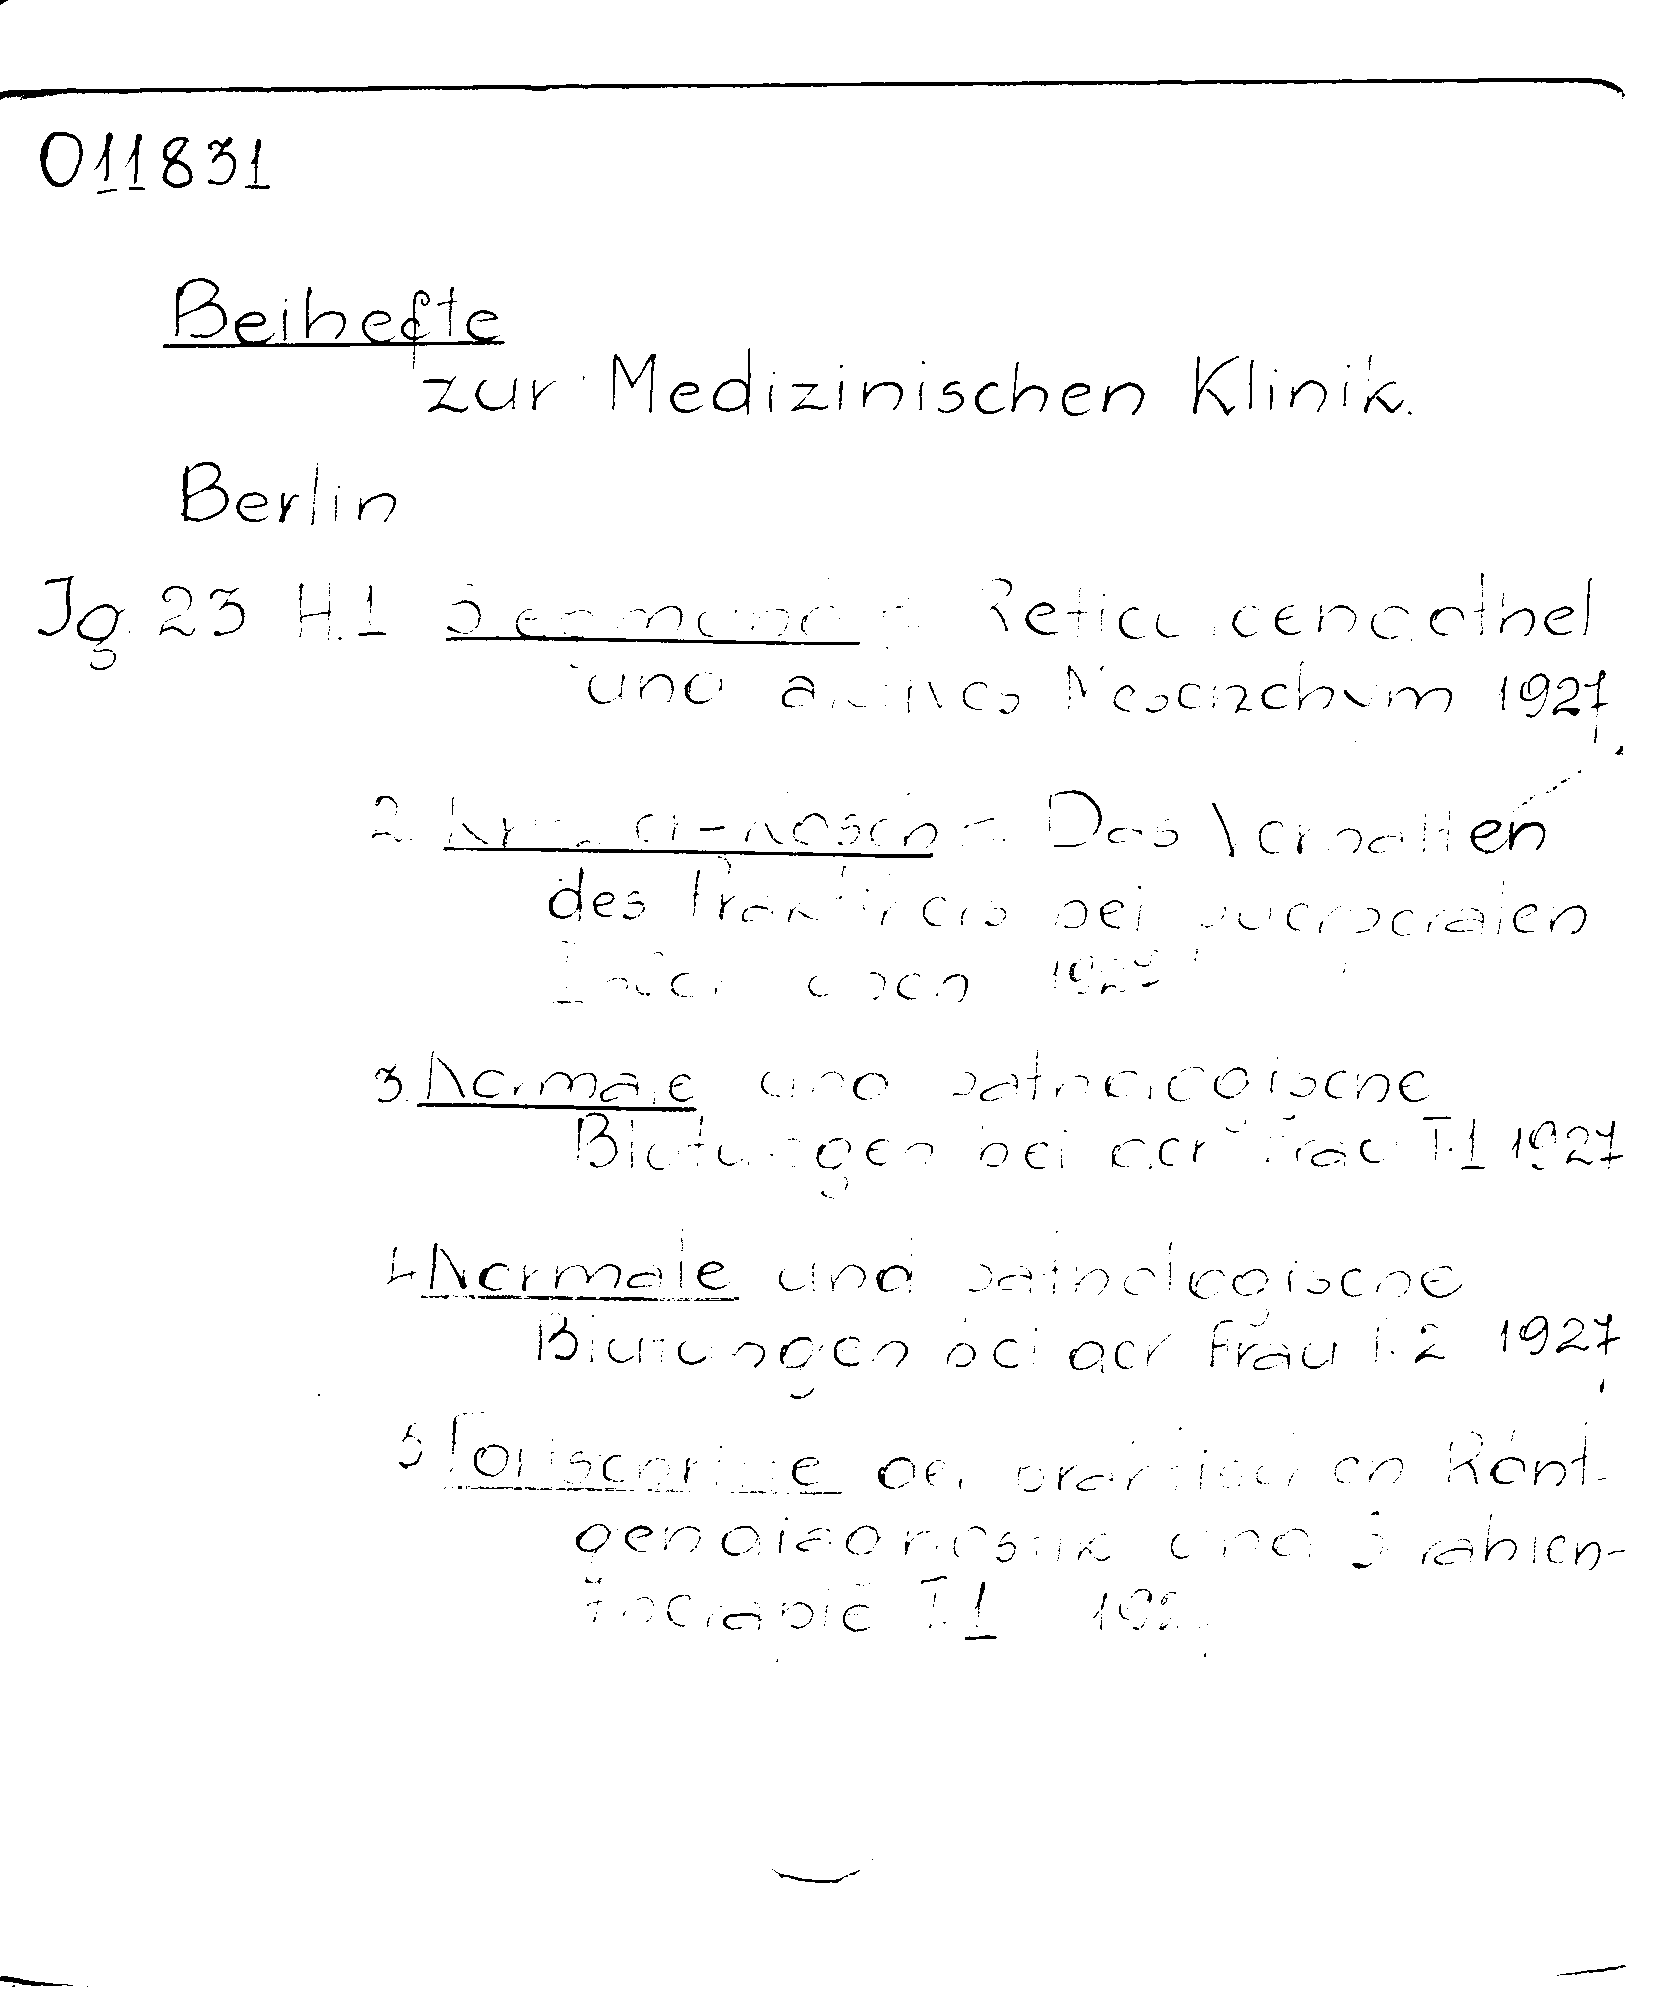 011831
Beihefte
zur Medizinischen Klinik.
Berlin
Jg. 23 H.1 Siegmund Reticuloendothel
und aktives Mesenchym 1927
2. Das Verhalten
des Praktikers bei puerperalen
1927
3. Normale und pathologische
Blutungen bei der Frau T.1 1927
4. Normale und pathologische
Blutungen bei der Frau T.2 1927
5. Fortschritte der praktischen Rönt-
gendiagnostik und Strahlen-
therapie T.1